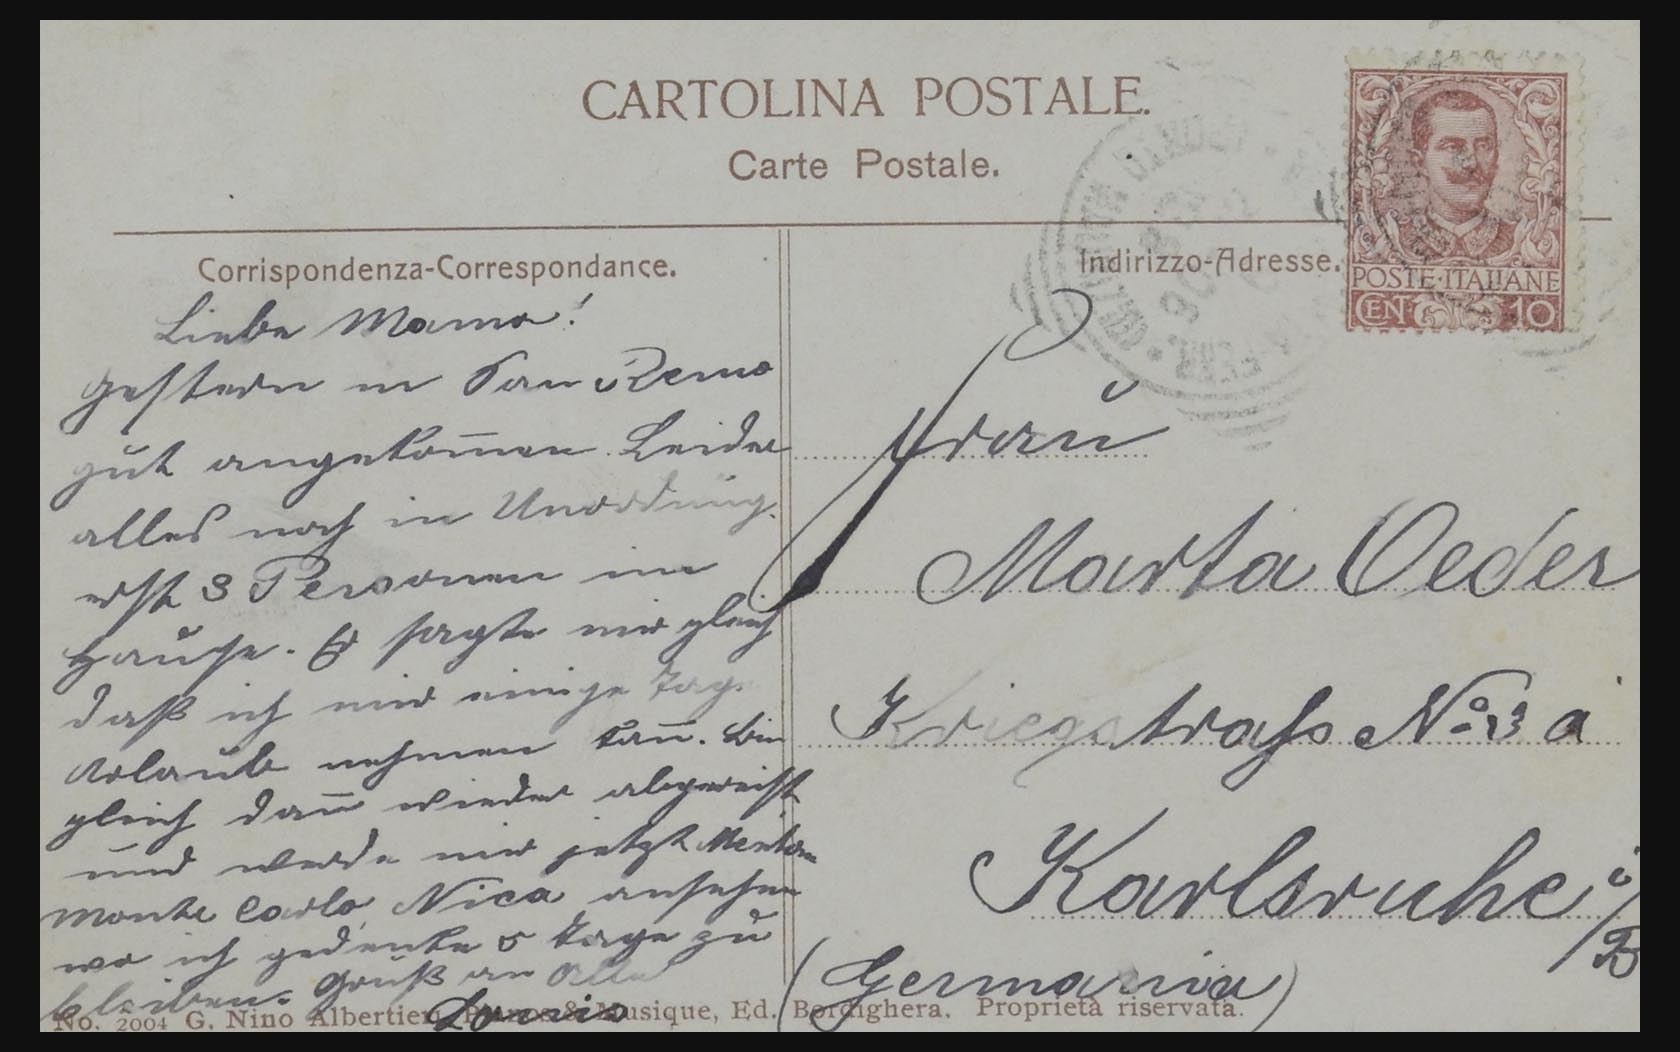 CARTOLINA POSTALE.
Carte Postale.
Corrispondenza-Correspondance.
Indirizzo-Adresse.
POSTE·ITALIANE
CENT 10
Liebe Mama!
Gestern in San Remo
gut angekom̄en. Leider
alles noch in Unordnung.
erst 3 Personen im
Hause. Er sagte mir gleich
daß ich mir einige Tage
Urlaub nehmen kan̄. Bin
gleich dan̄ wieder abgereist
und werde mir jetzt Menton
Monte Carlo, Nica ansehen
wo ich gedenke 5 Tage zu
bleiben. Gruß an Alle
Frau
Marta Oeder
Kriegstrasse No. 3 a
Karlsruhe i/B
(Germania)
No. 2004 G. Nino Albertieri, Pianos & Musique, Ed. Bordighera. Proprietà riservata.